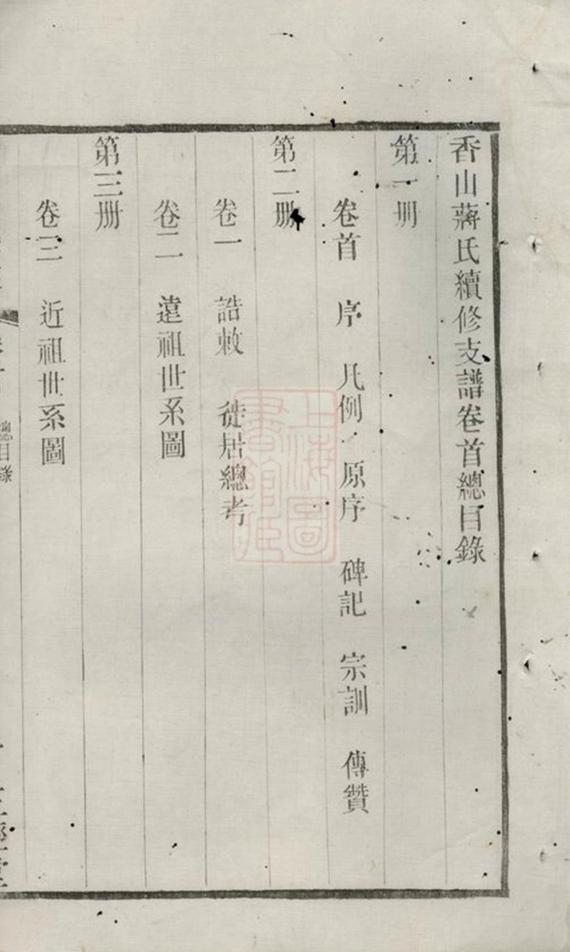 香山蔣氏續修支譜卷首總目錄
第一册
卷首 序 凡例 原序 碑記 宗訓 傳贊
第二册
卷一 誥敕 徙居總考
卷二 遠祖世系圖
第三册
卷三 近祖世系圖
總目錄
上海圖書館藏